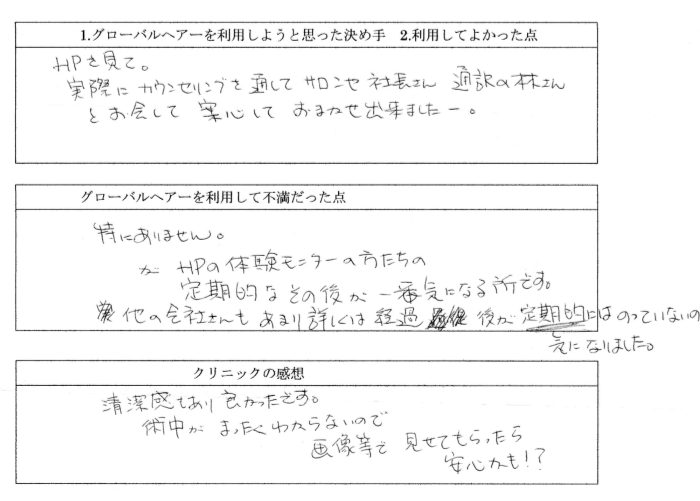 1.グローバルヘアーを利用しようと思った決め手 2.利用してよかった点
HPを見て。
実際にカウンセリングを通して サロンや 社長さん 通訳の林さん
とお会して 安心して おまかせ出来ましたー。
グローバルヘアーを利用して不満だった点
特にありません。
が HPの体験モニターの方たちの
定期的なその後が 一番気になる所です。
他の会社さんも あまり詳しくは 経過 後が 定期的にはのっていないの
気になりました。
クリニックの感想
清潔感もあり 良かったです。
術中が まったくわからないので
画像等で 見せてもらったら
安心かも!?